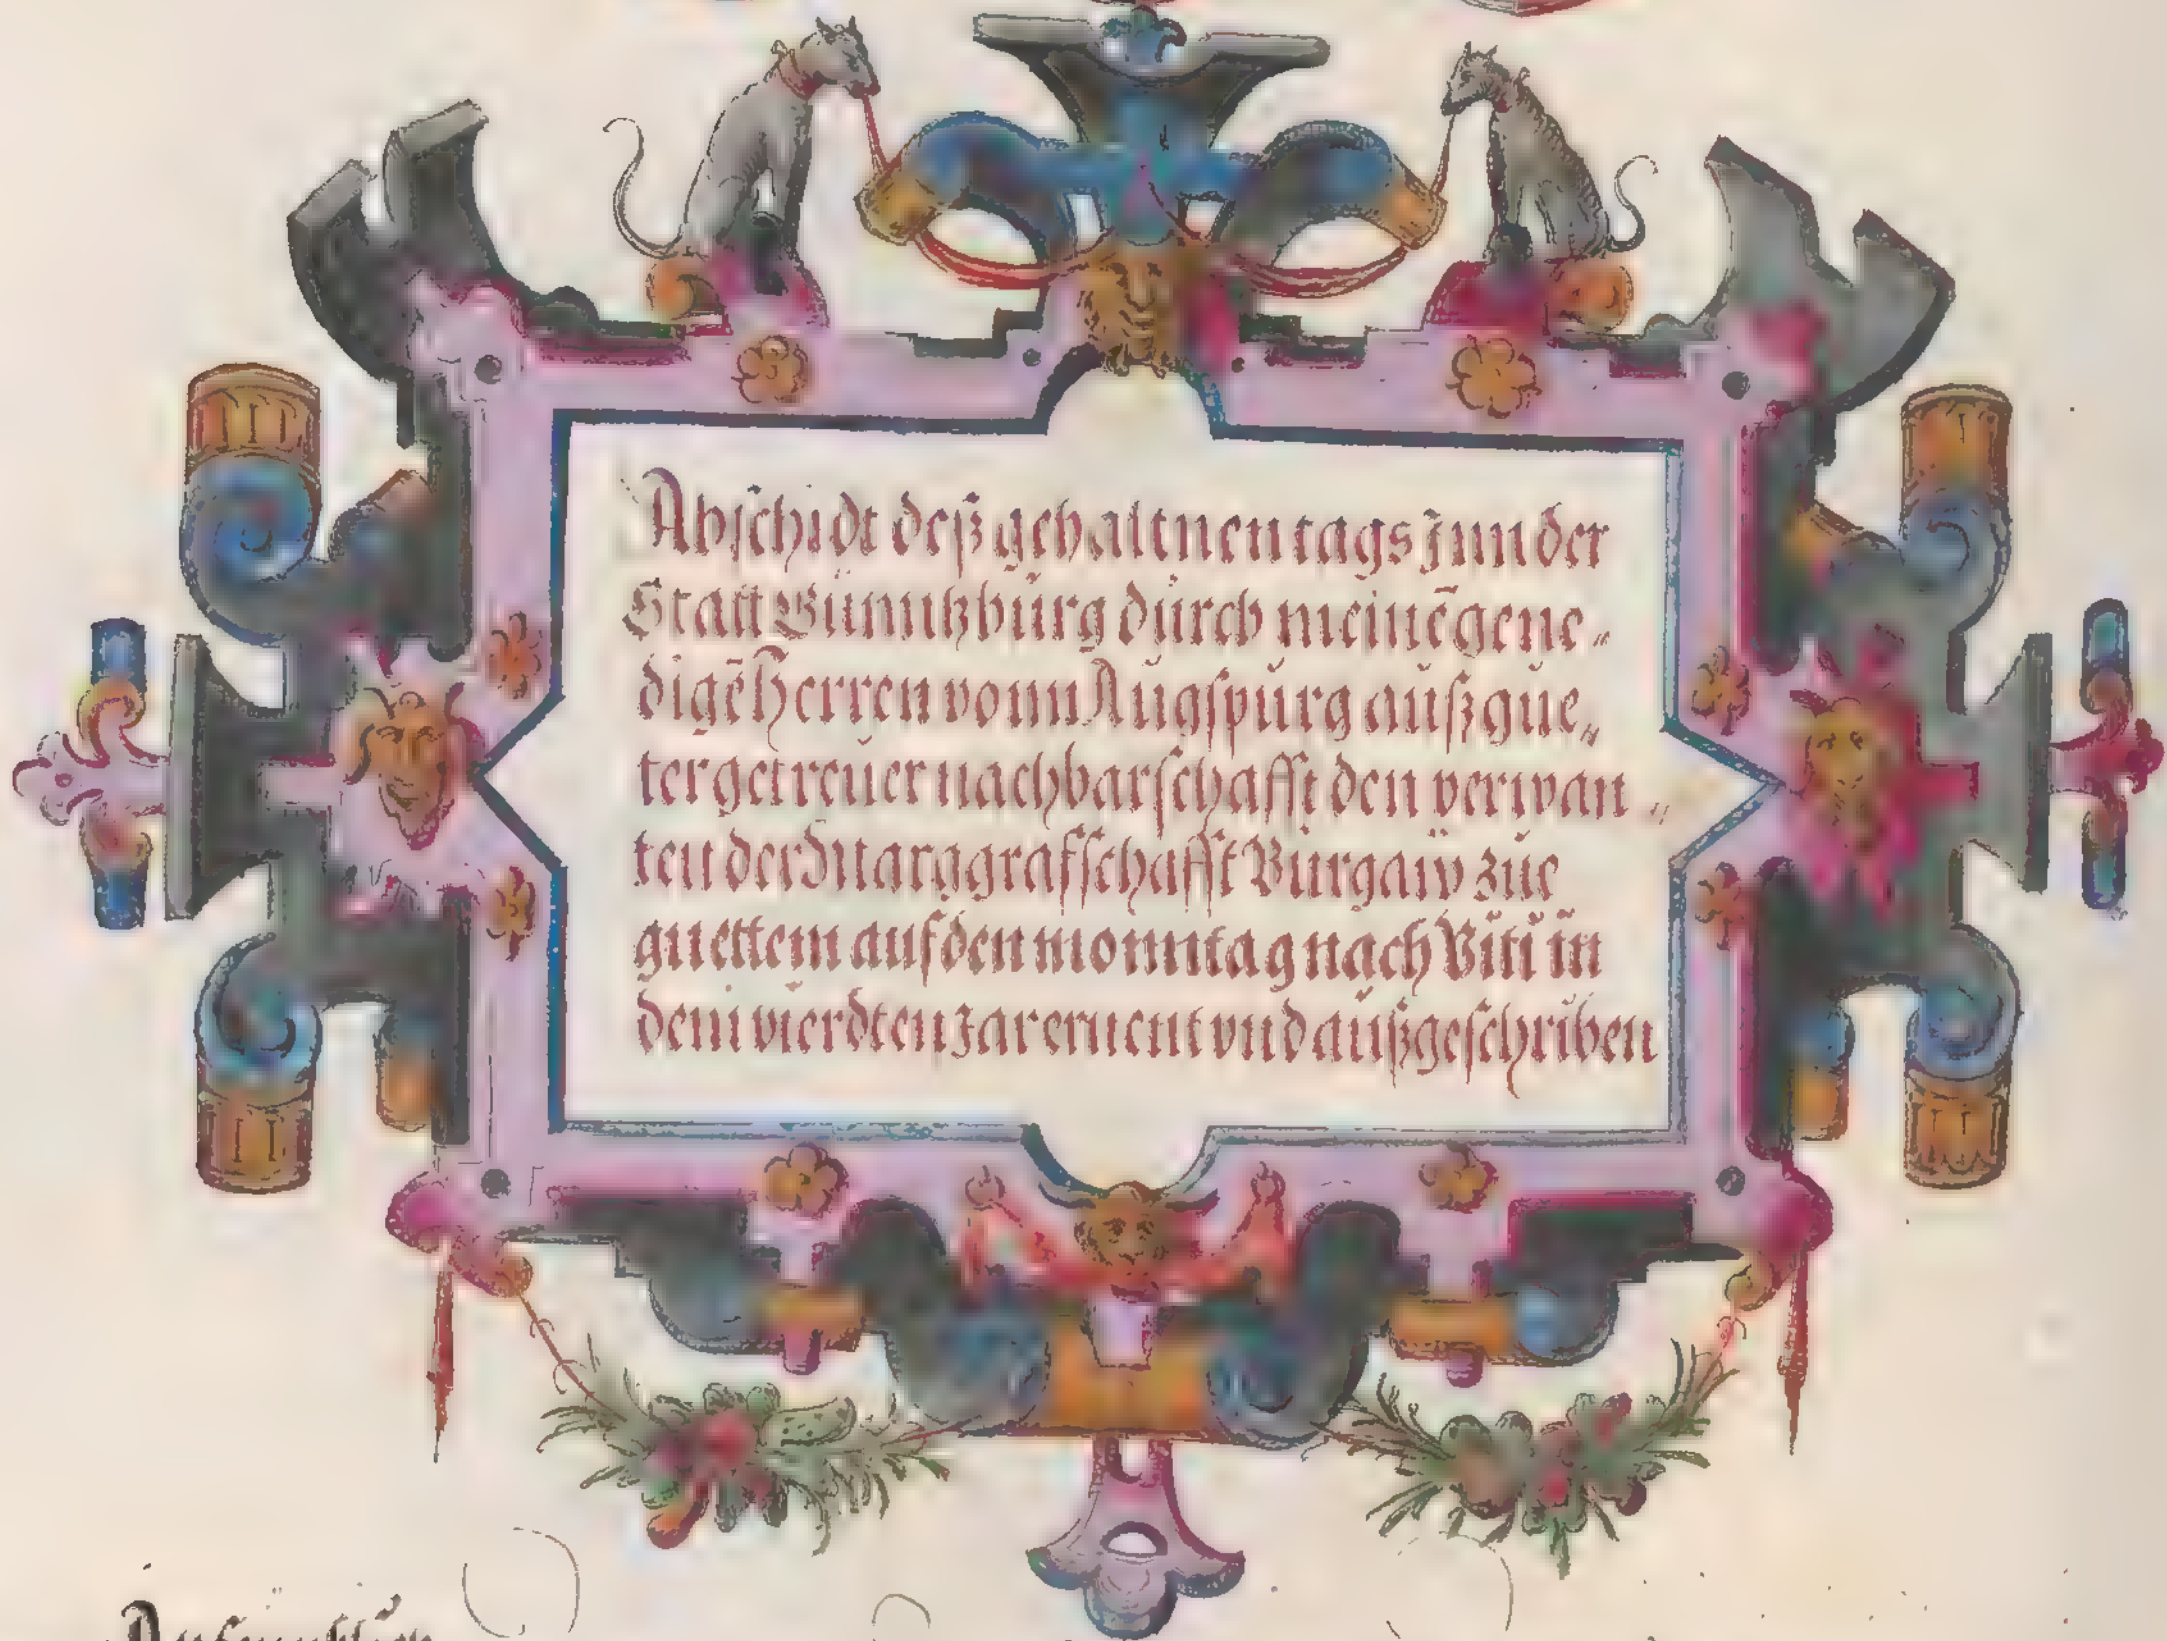 Abschidt deß gehaltnen tags Inn der
Statt Günntzbürg dürch meinē gene„
digē Herren vonn Aügspürg aüß güe„
ter getreüer nachbarschafft den verwan„
ten der Marggrafschafft Bürgaw züe
guettem auf den monntag nach Viti in
dem vierdten Jar ernent vnd aüßgeschriben